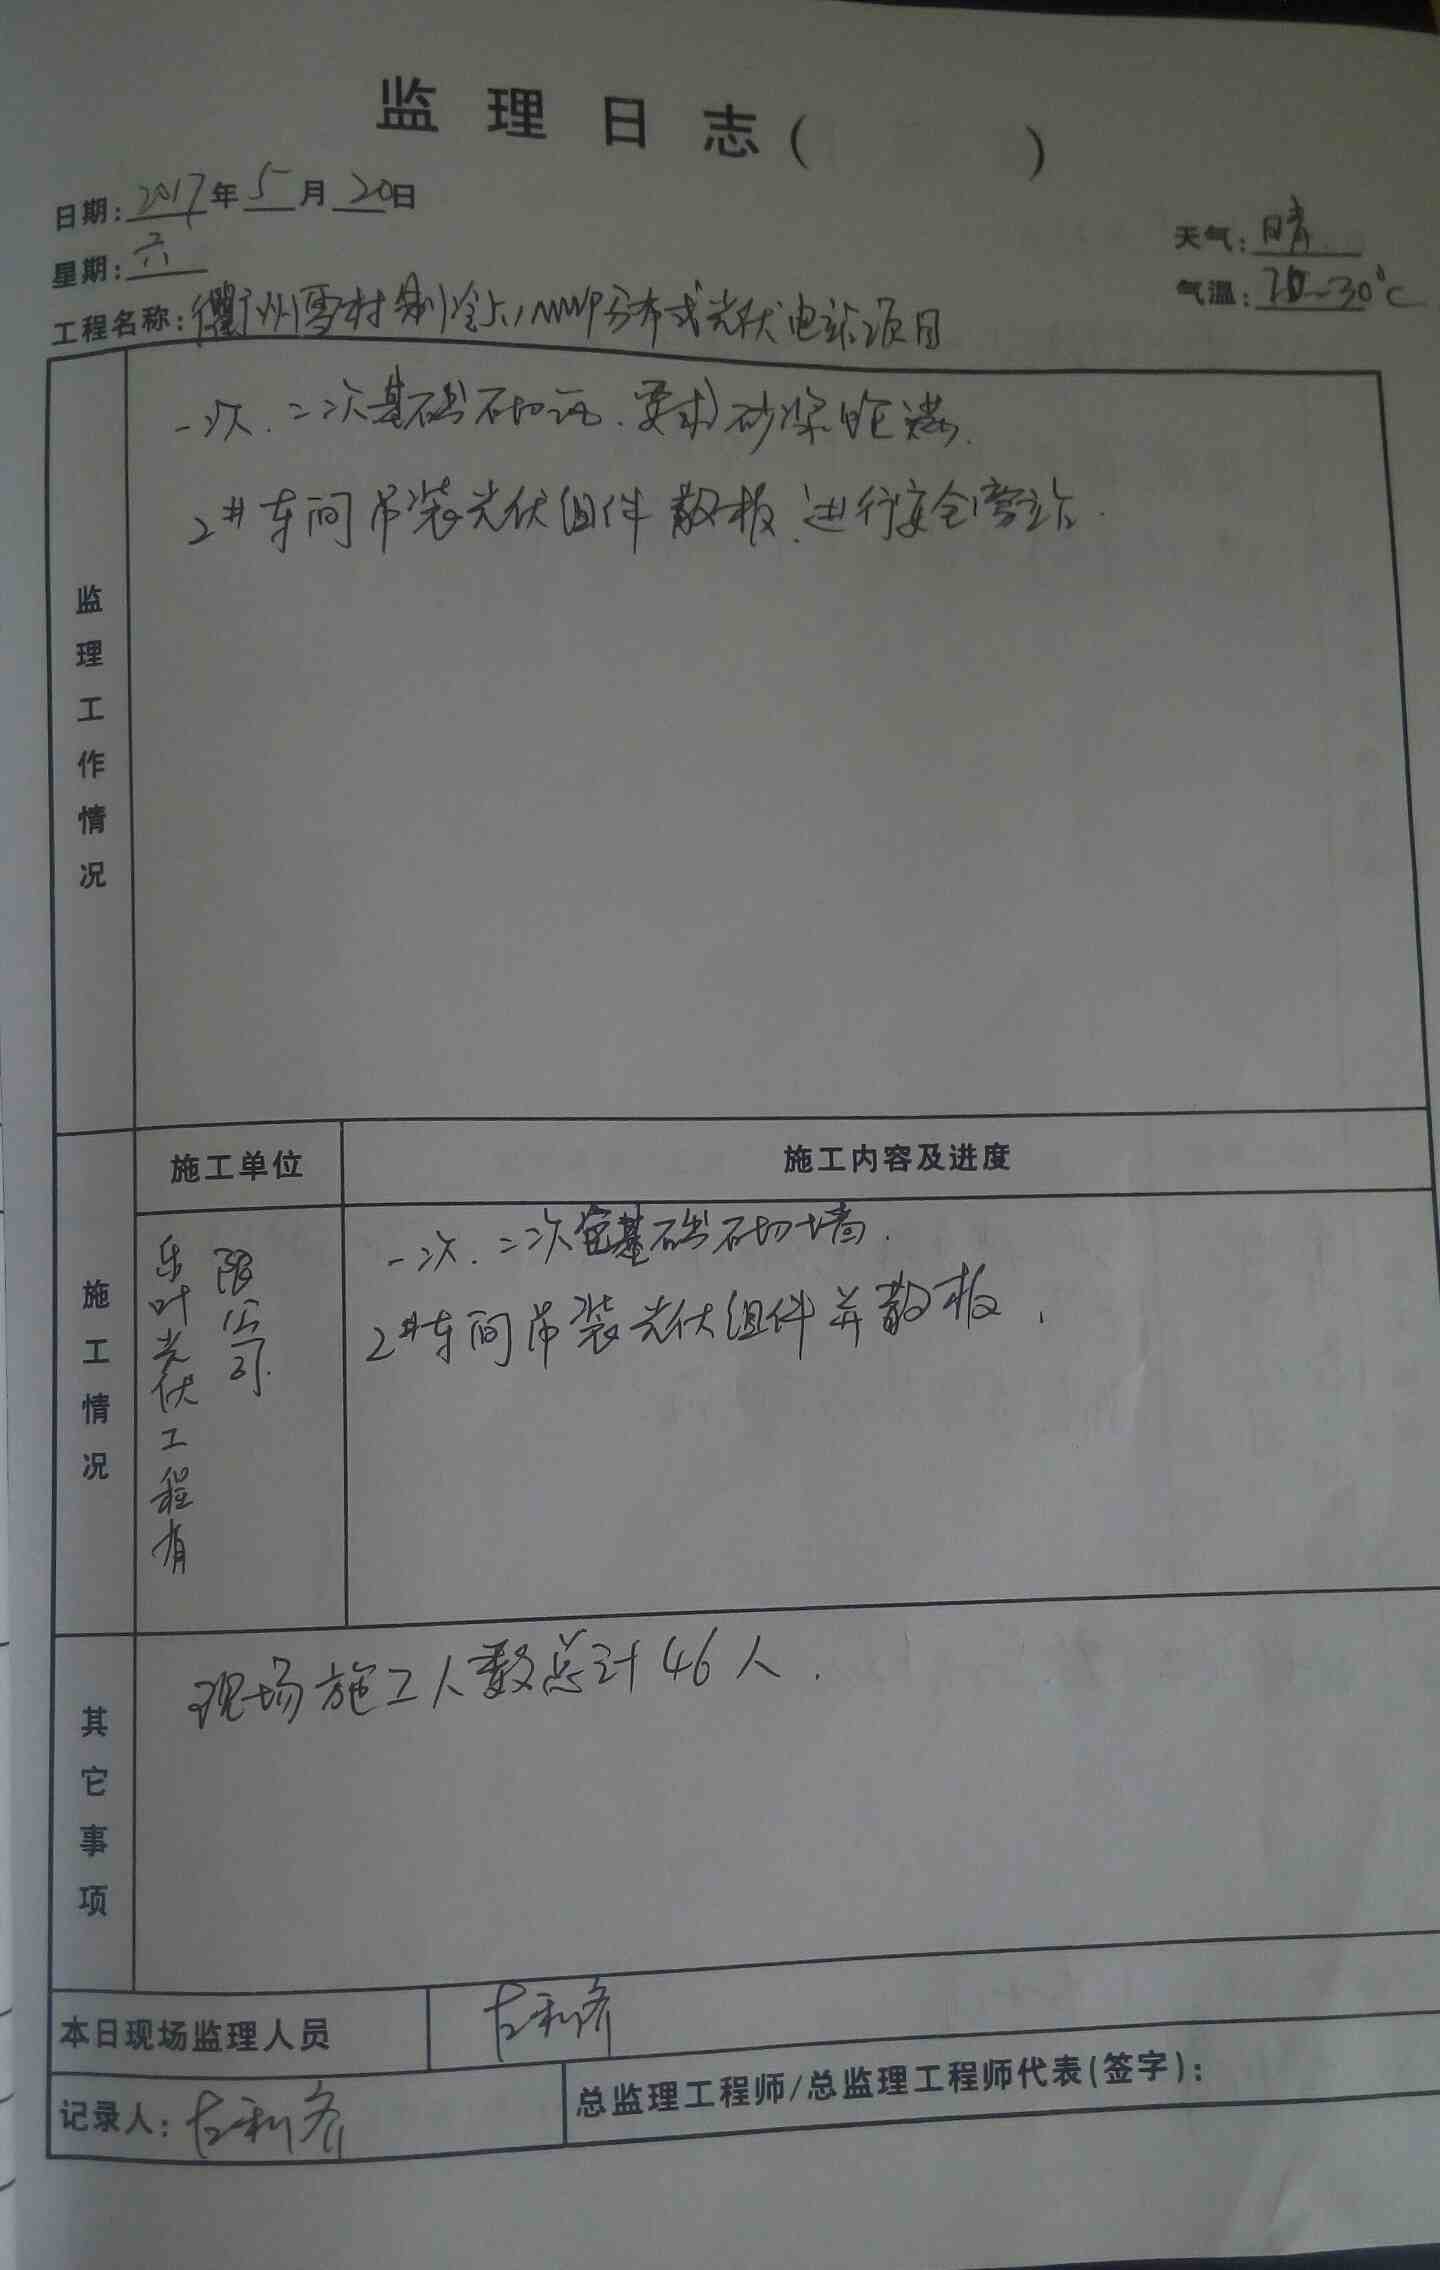 监理日志( )
日期: 2017年5月20日
星期: 六
天气: 晴
气温: ~30℃
工程名称: 衢州雪村制冷5.1MWP分布式光伏电站项目
监理工作情况
一次.二次基础砌 .要求砂浆饱满.
2#车间吊装光伏组件散板.进行安全旁站.
施工情况
施工单位
施工内容及进度
乐叶光伏工程有限公司.
一次.二次基础砌墙.
2#车间吊装光伏组件并散板.
其它事项
现场施工人数总计46人.
本日现场监理人员 古利齐
记录人: 古利齐
总监理工程师/总监理工程师代表(签字):